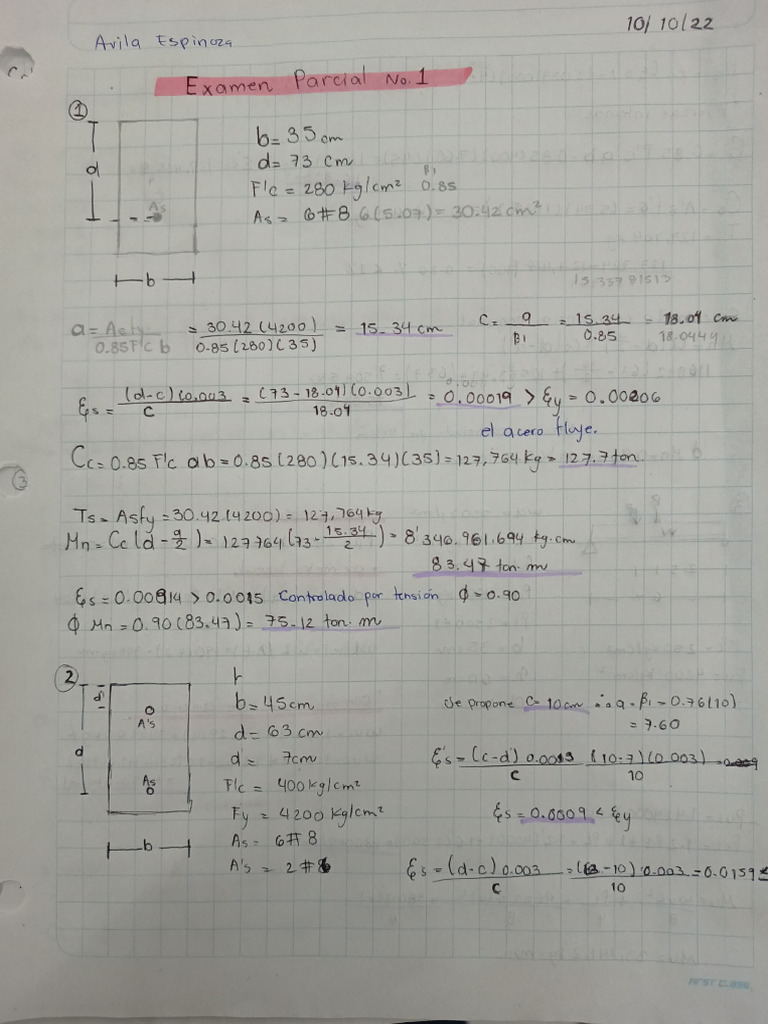 10/10/22
Avila Espinoza
Examen Parcial No. 1
①
d
As
b
b = 35 cm
d = 73 cm
F'c = 280 kg/cm² β1 0.85
As = 6#8 6(5.07) = 30.42 cm²
15.33781513
a = Asfy / 0.85F'c b = 30.42(4200) / 0.85(280)(35) = 15.34 cm C = a / β1 = 15.34 / 0.85 = 18.04 cm
18.0444
Ɛs = (d-c)(0.003) / C = (73-18.04)(0.003) / 18.04 = 0.00019 > Ɛy = 0.00206
el acero fluye.
Cc = 0.85 F'c ab = 0.85(280)(15.34)(35) = 127,764 kg = 127.7 ton.
Ts = Asfy = 30.42(4200) = 127,764 kg
Mn = Cc(d - a/2) = 127764(73 - 15.34/2) = 8'346.961.694 kg.cm
83.47 ton. m
Ɛs = 0.00914 > 0.0015 Controlado por tensión Φ = 0.90
Φ Mn = 0.90(83.47) = 75.12 ton. m
②
d'
A's
d
As
b
b = 45 cm
d = 63 cm
d' = 7cm
F'c = 400 kg/cm²
Fy = 4200 kg/cm²
As = 6#8
A's = 2#
Se propone C = 10 cm ∴ a = β1 = 0.76(10)
= 7.60
Ɛ's = (c-d')0.003 / C (10-7)(0.003) / 10
Ɛs = 0.0009 < Ɛy
Ɛs = (d-c)0.003 / C = (63-10) 0.003 / 10 = 0.0159
FIRST CLASS